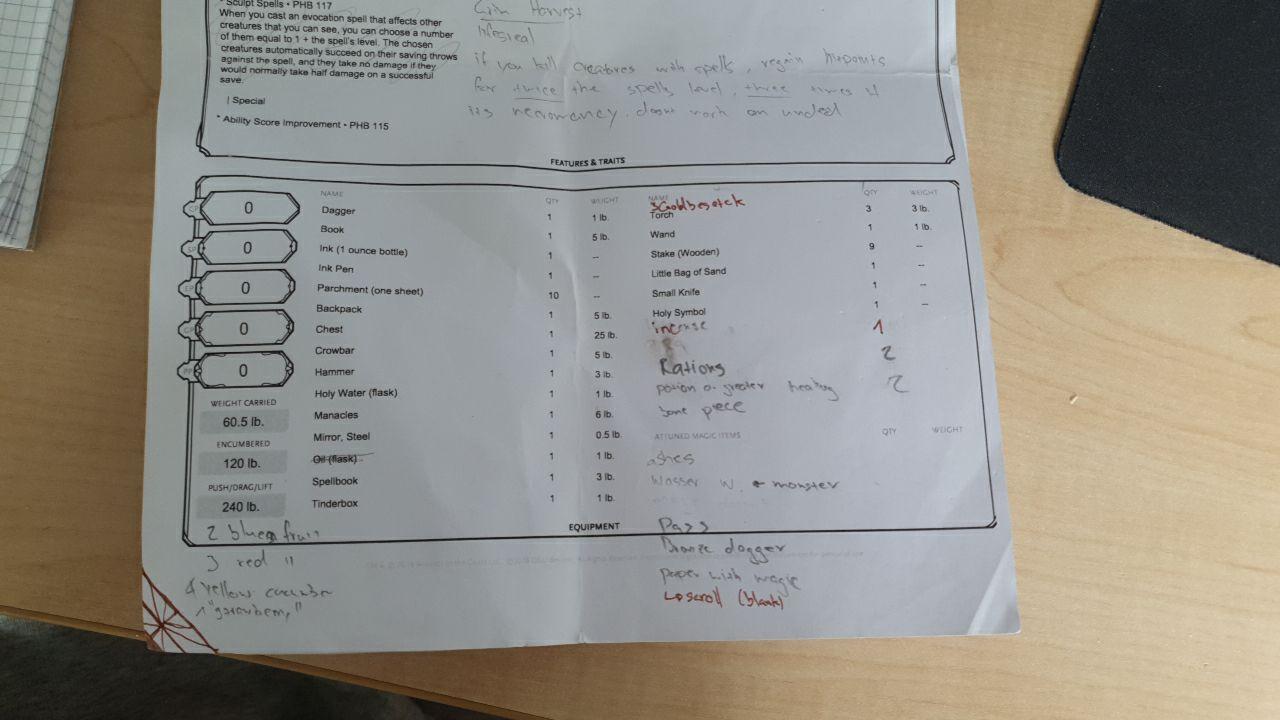 * Sculpt Spells • PHB 117
When you cast an evocation spell that affects other
creatures that you can see, you can choose a number
of them equal to 1 + the spell's level. The chosen
creatures automatically succeed on their saving throws
against the spell, and they take no damage if they
would normally take half damage on a successful
save.
| Special
* Ability Score Improvement • PHB 115
Grim Harvest
if you kill creatures with spells, regain hitpoints
for twice the spells level, three times if
its necromancy. doesnt work on undead
FEATURES & TRAITS
CP 0
SP 0
EP 0
GP 0
PP 0
WEIGHT CARRIED
60.5 lb.
ENCUMBERED
120 lb.
PUSH/DRAG/LIFT
240 lb.
NAME QTY WEIGHT
Dagger 1 1 lb.
Book 1 5 lb.
Ink (1 ounce bottle) 1 --
Ink Pen 1 --
Parchment (one sheet) 10 --
Backpack 1 5 lb.
Chest 1 25 lb.
Crowbar 1 5 lb.
Hammer 1 3 lb.
Holy Water (flask) 1 1 lb.
Manacles 1 6 lb.
Mirror, Steel 1 0.5 lb.
Oil (flask) 1 1 lb.
Spellbook 1 3 lb.
Tinderbox 1 1 lb.
NAME QTY WEIGHT
Torch 3 3 lb.
Wand 1 1 lb.
Stake (Wooden) 9 --
Little Bag of Sand 1 --
Small Knife 1 --
Holy Symbol 1 --
incense 1
Rations 2
potion of greater healing 2
bone piece
ATTUNED MAGIC ITEMS QTY WEIGHT
ashes
Wasser w. monster
EQUIPMENT
2 blue fruit
3 red "
4 yellow
1
Pass
Bronze dagger
paper with magic
scroll (blank)